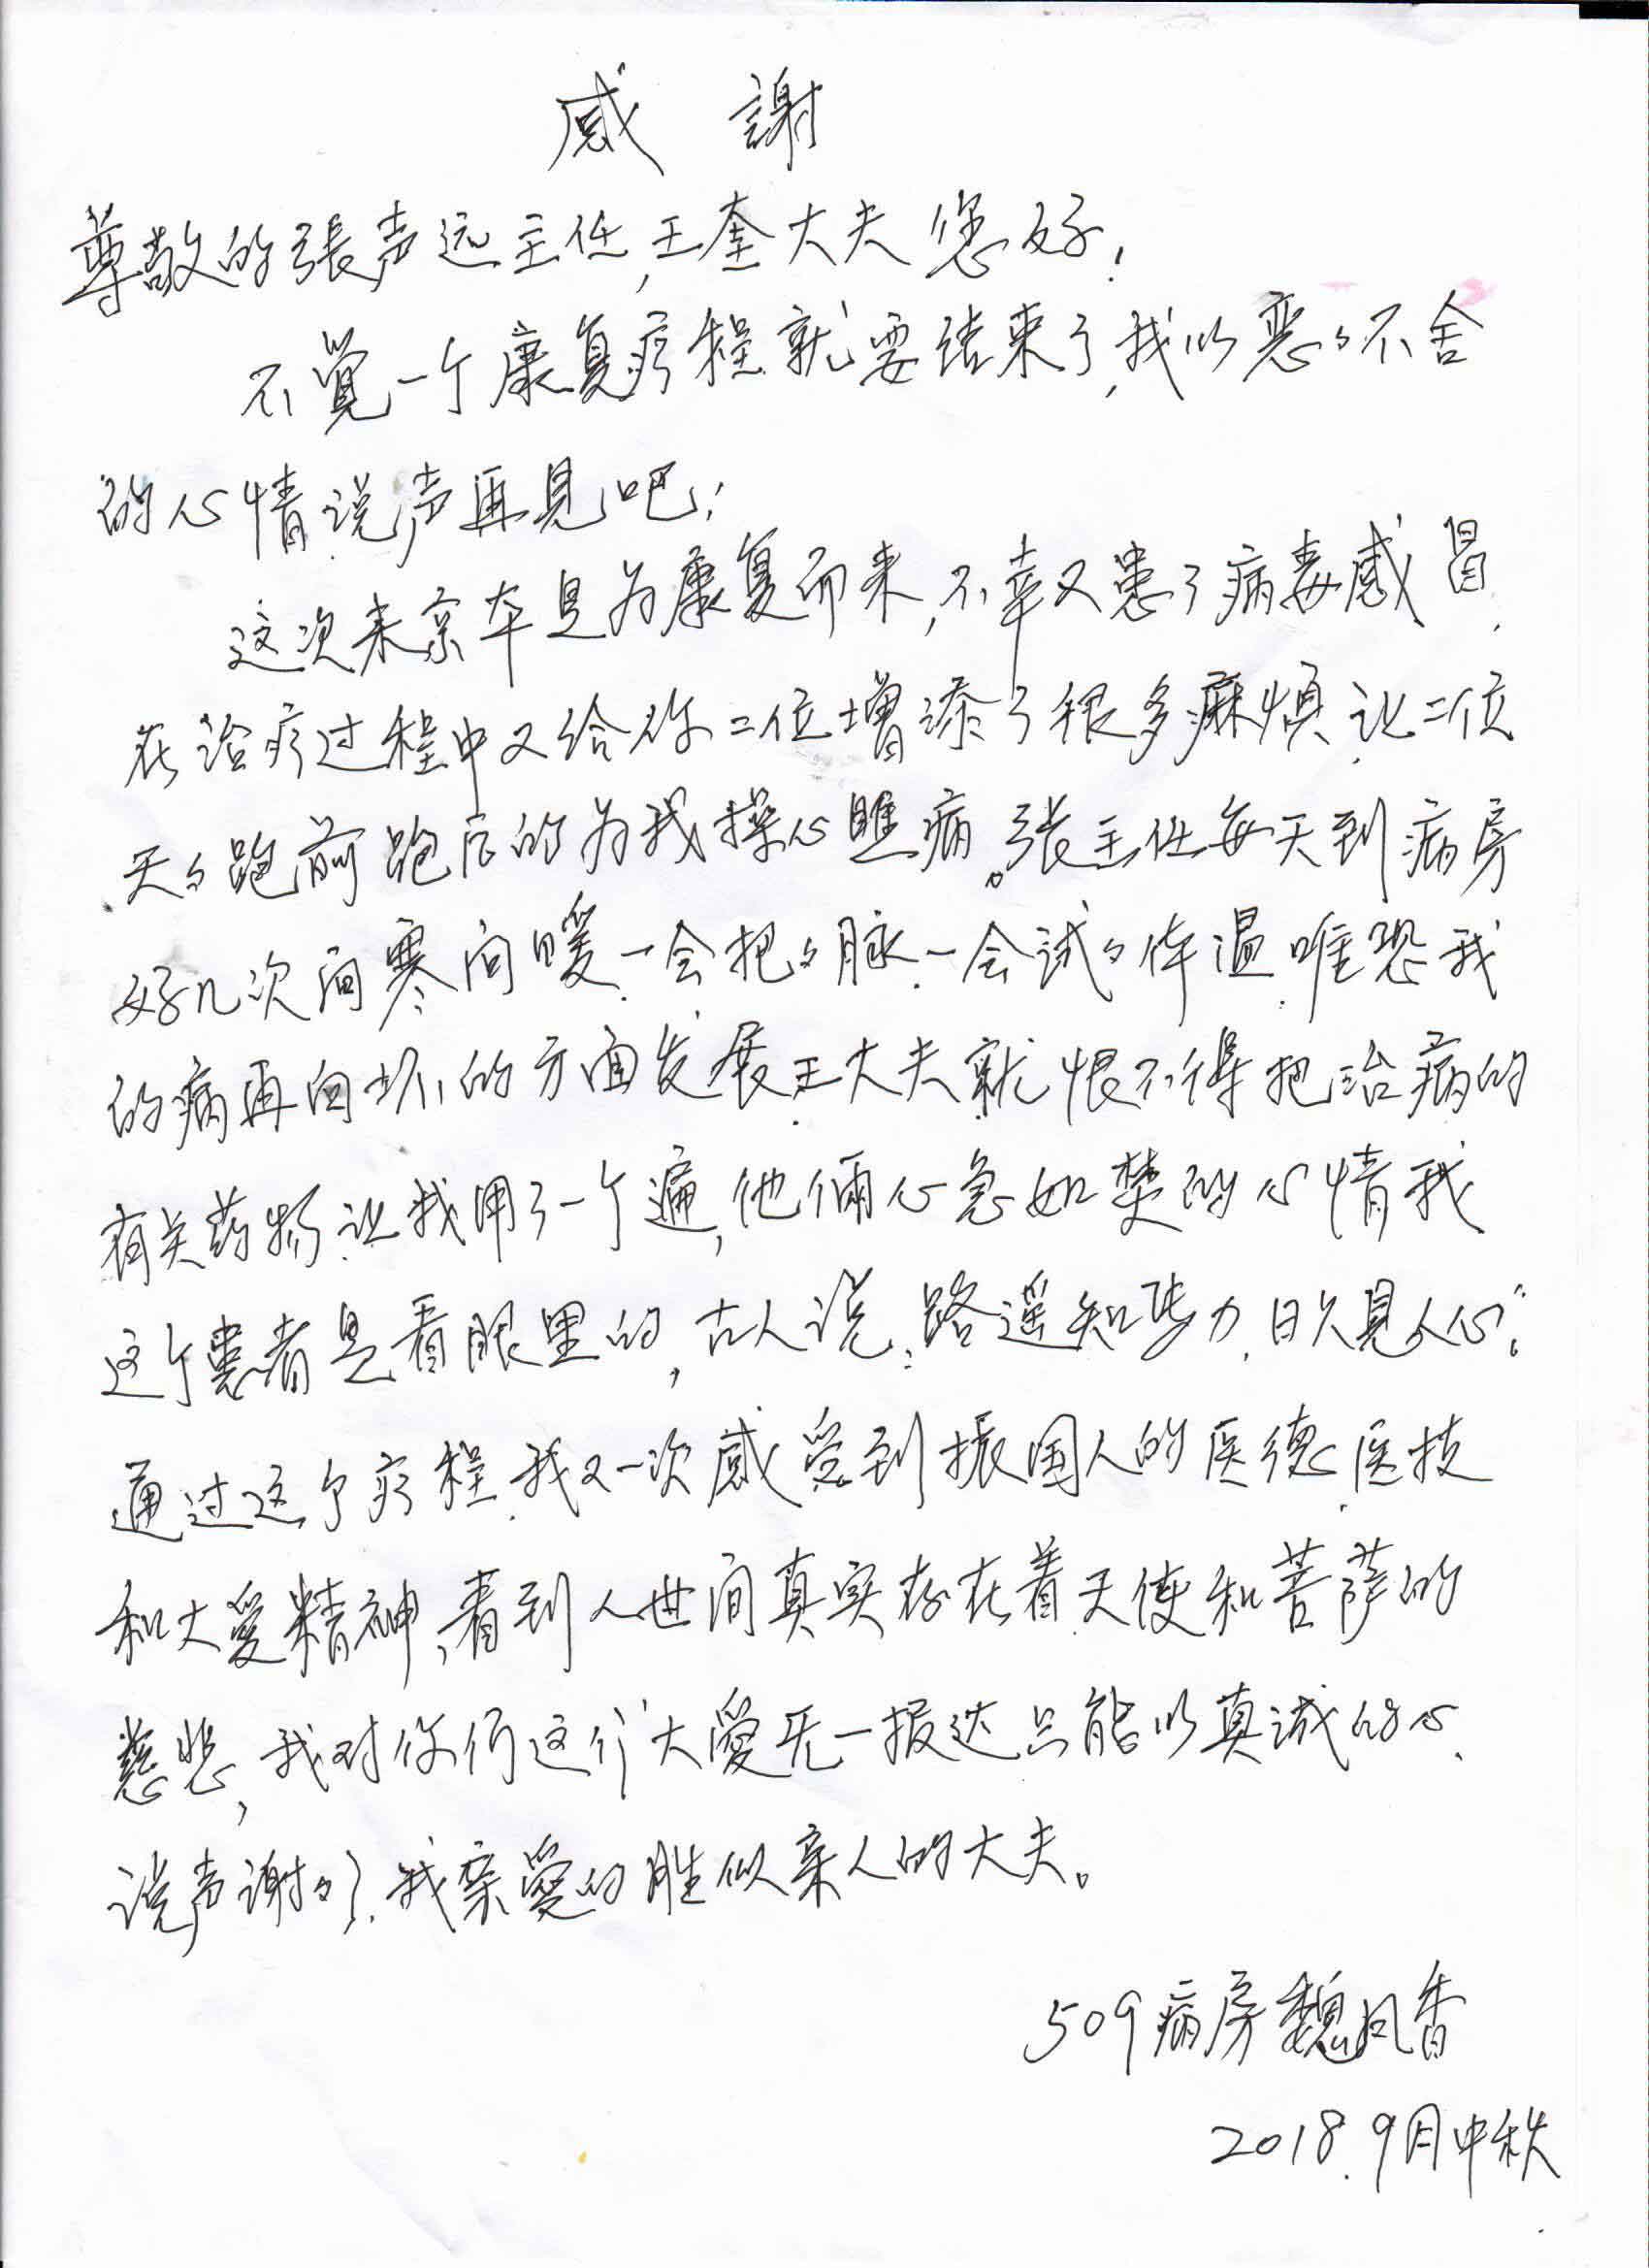 感 謝
尊敬的張声远主任,王奎大夫您好!
不覚一个康复疗程就要结束了,我以恋々不舍
的心情说声再见吧!
这次来京本是为康复而来,不幸又患了病毒感冒,
在治疗过程中又给你二位增添了很多麻烦,让二位
天々跑前跑后的为我操心瞧病。张主任每天到病房
好几次问寒问暖,一会把々脉,一会试々体温,唯恐我
的病再向坏的方面发展,王大夫就恨不得把治病的
有关药物让我用了一个遍,他俩心急如焚的心情我
这个患者是看眼里的,古人说:路遥知马力,日久见人心”。
通过这个疗程,我又一次感受到振国人的医德,医技
和大爱精神,看到人世间真实存在着天使和菩萨的
慈悲,我对你们这个“大愛无一报达只能以真诚的心,
说声谢々了,我亲愛的胜似亲人的大夫。
509病房魏凤香
2018.9月中秋